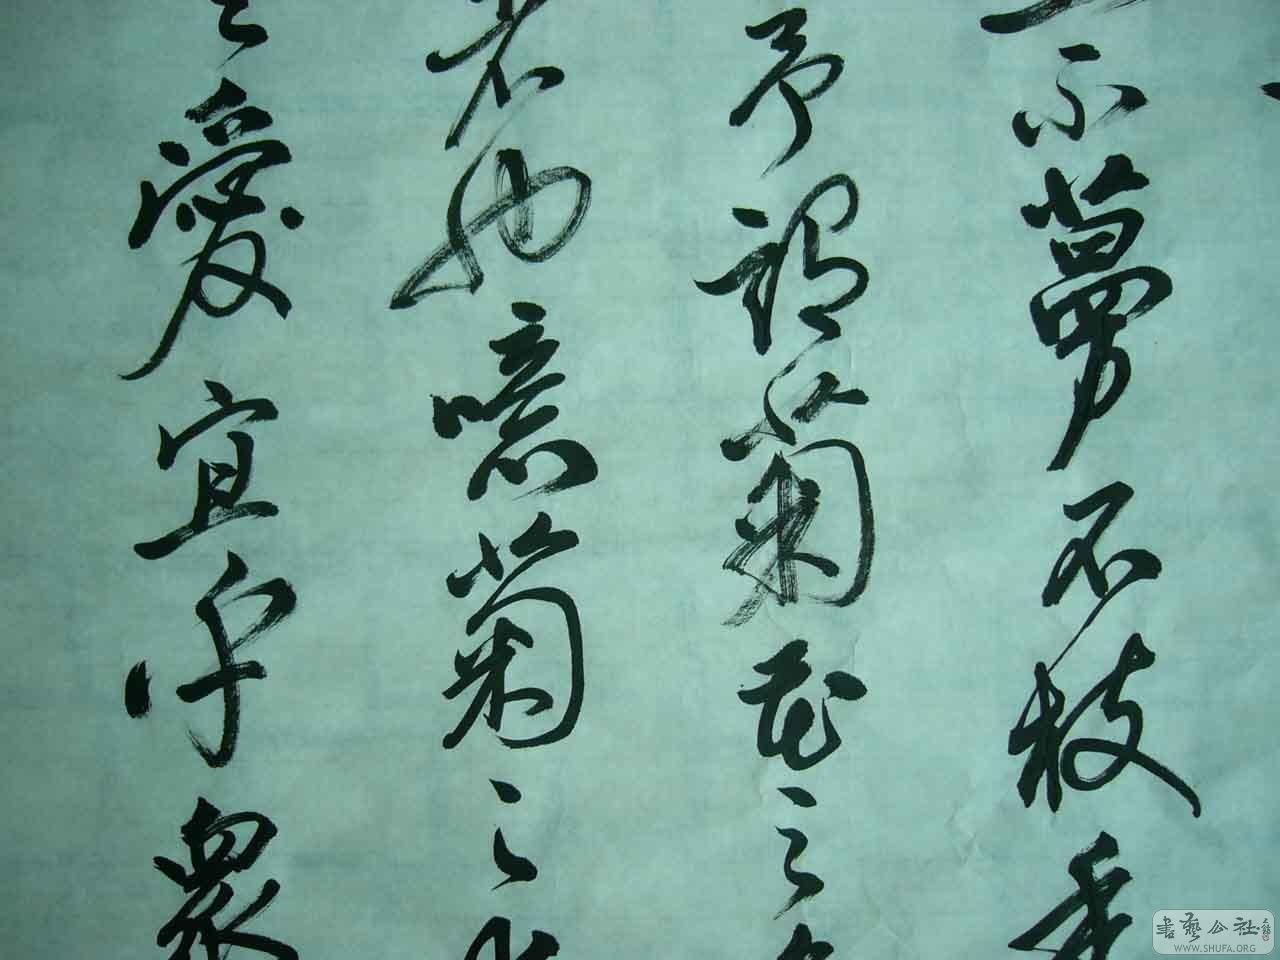 不蔓不枝香
予謂菊花之
者也噫菊之
之愛宜乎衆
書藝公社
WWW.SHUFA.ORG